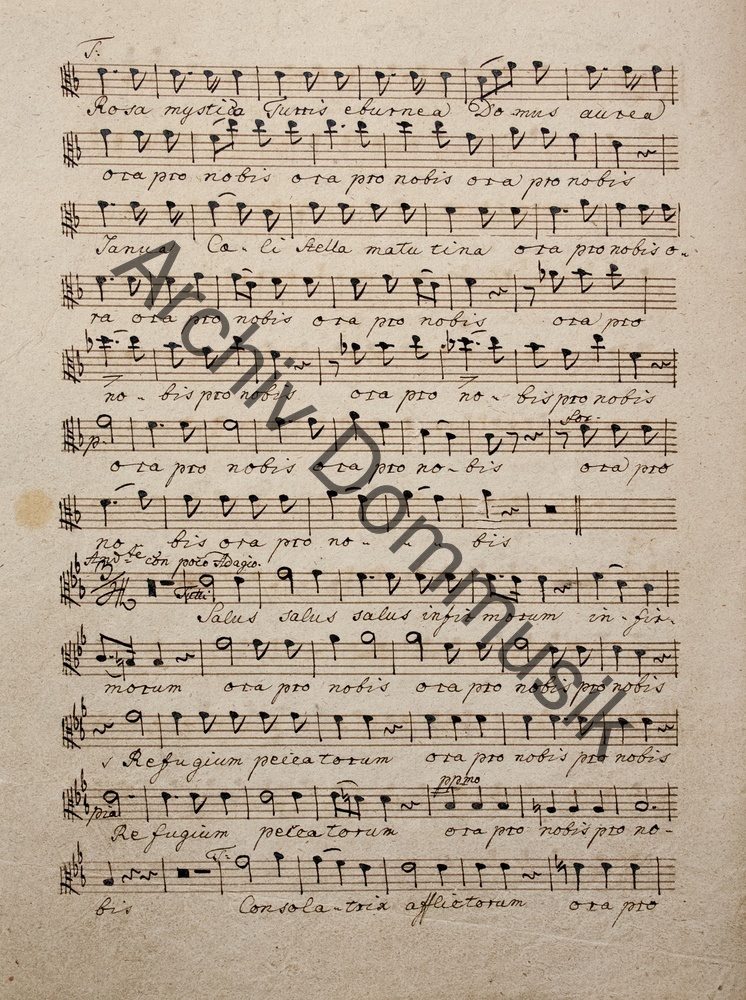 T:
Rosa mystica Turris eburnea Domus aurea
ora pro nobis ora pro nobis ora pro nobis
Janua Cœ - li stella matutina ora pro nobis o -
ra ora pro nobis ora pro nobis ora pro
no - bis pro nobis ora pro no - bis pro nobis
for.
p.
ora pro nobis ora pro no - bis ora pro
no - bis ora pro no - - - bis
And.te con poco Adagio.
Tutti
Salus salus salus infirmorum in - fir -
morum ora pro nobis ora pro nobis pro nobis
s Refugium peccatorum ora pro nobis pro nobis
ppmo
pia
Refugium peccatorum ora pro nobis pro no -
T:
bis Consola - trix afflictorum ora pro
Archiv Dommusik